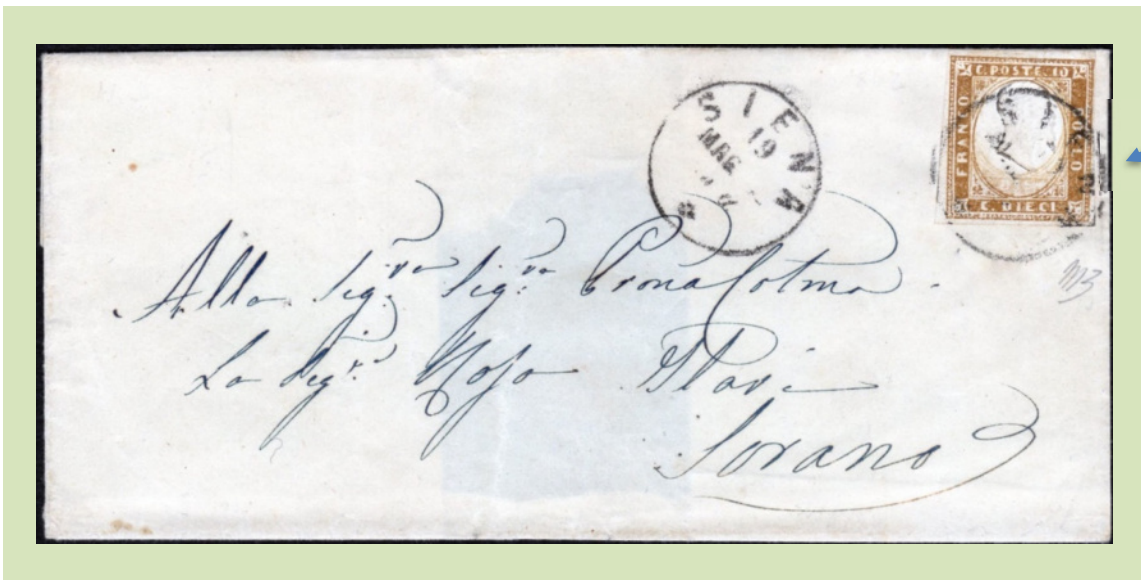 SIENA
19
MAG
C. POSTE. 10
FRANCO
BOLLO
C. DIECI
SIENA
Alla Sig.ra Sig.ra Prona Colma
La Sig.ra Rosa
Sorano